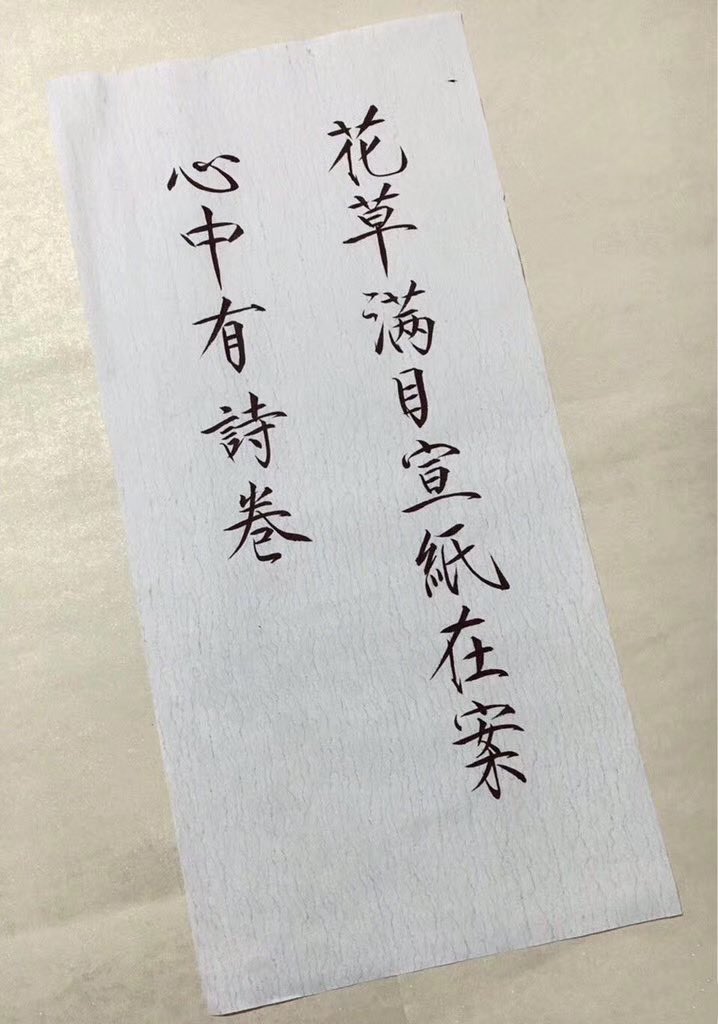 花草满目宣紙在案
心中有詩卷